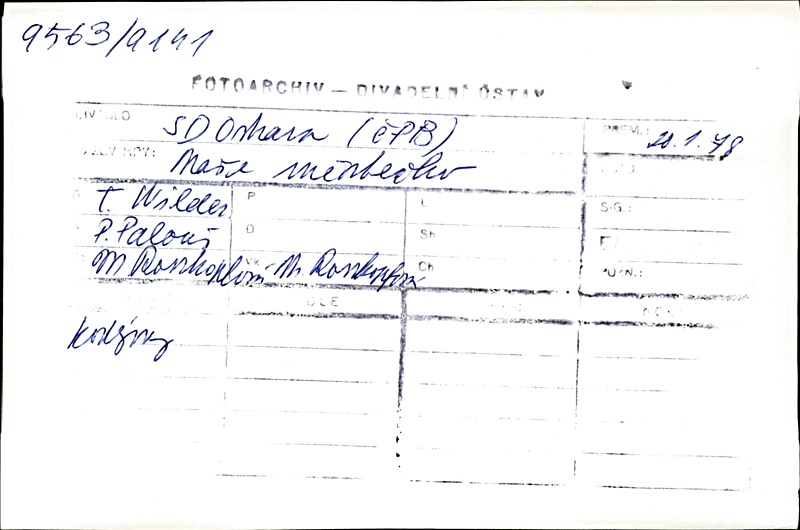 9563/9141
FOTOARCHIV — DIVADELNÍ ÚSTAV
DIVADLO SD Ostrava (čPB) PREM.: 20.1.78
NÁZEV HRY: Naše městečko
T. Wilder P L SIG.:
P. Palouš D Sh
M Rosskopfová Vk M. Rosskopfová Ch
kostýmy